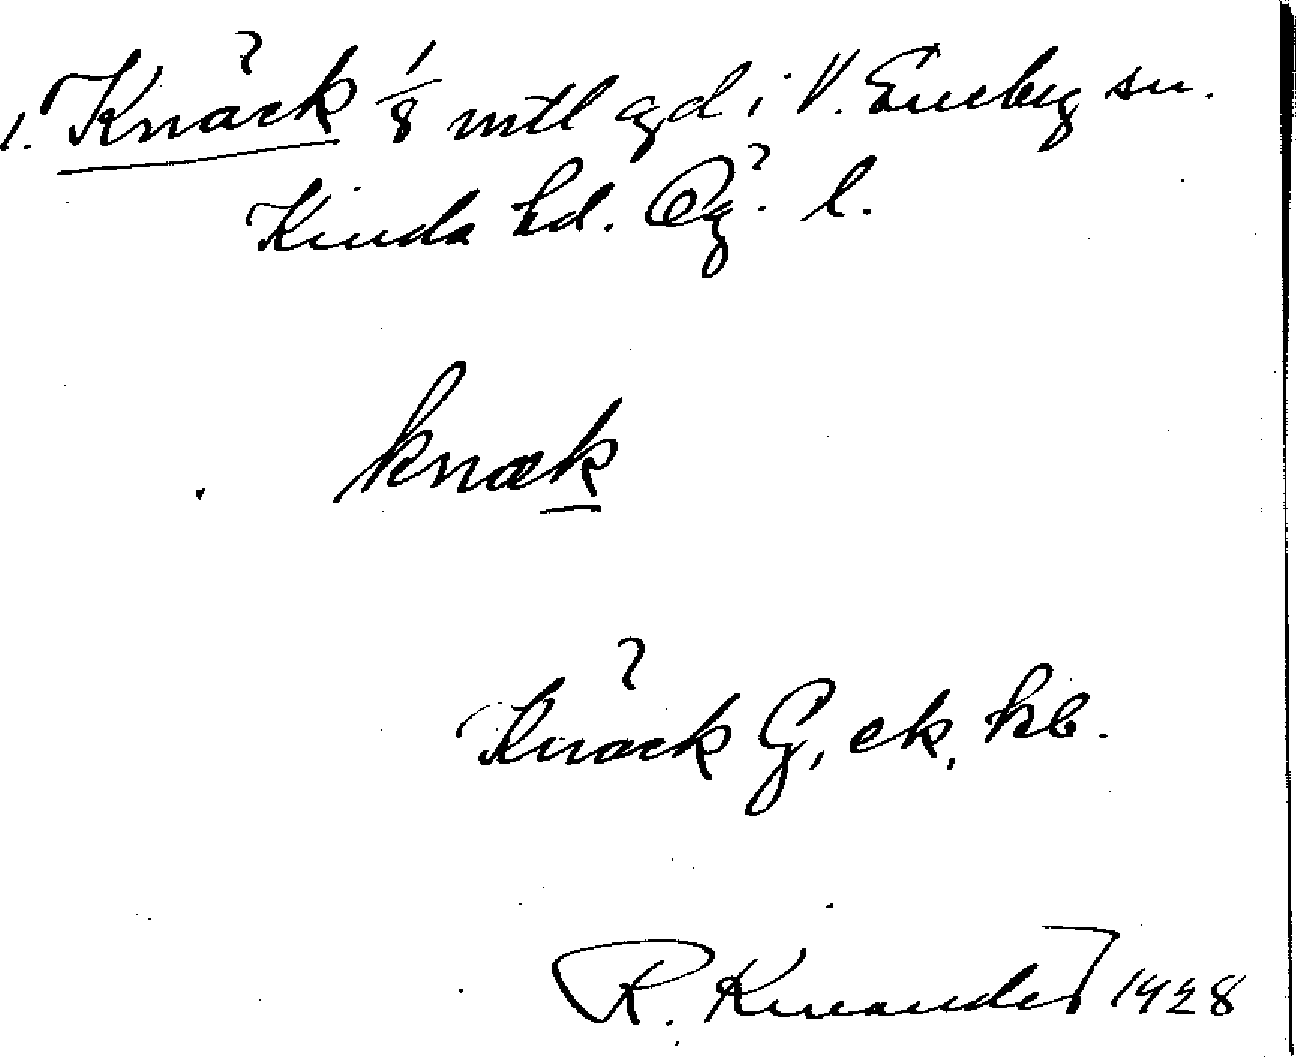 1. Knäck 1/8 mtl gd i V. Eneby sn.
Kinda hd. Ög. l.
knæk
Knäck G, ek, kb.
R. Kinander 1928